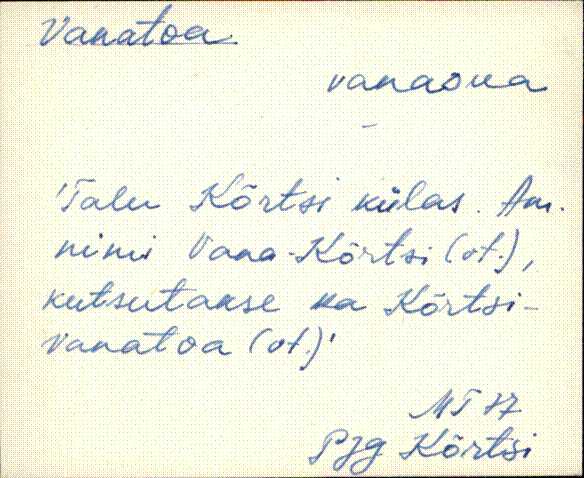 Vanatoa
vanaoua
'Talu Kõrtsi külas. Am.
nimi Vana-Kõrtsi (vt.),
kutsutakse ka Kõrtsi-
Vanatoa (vt.)'
MT 77
Pjg Kõrtsi